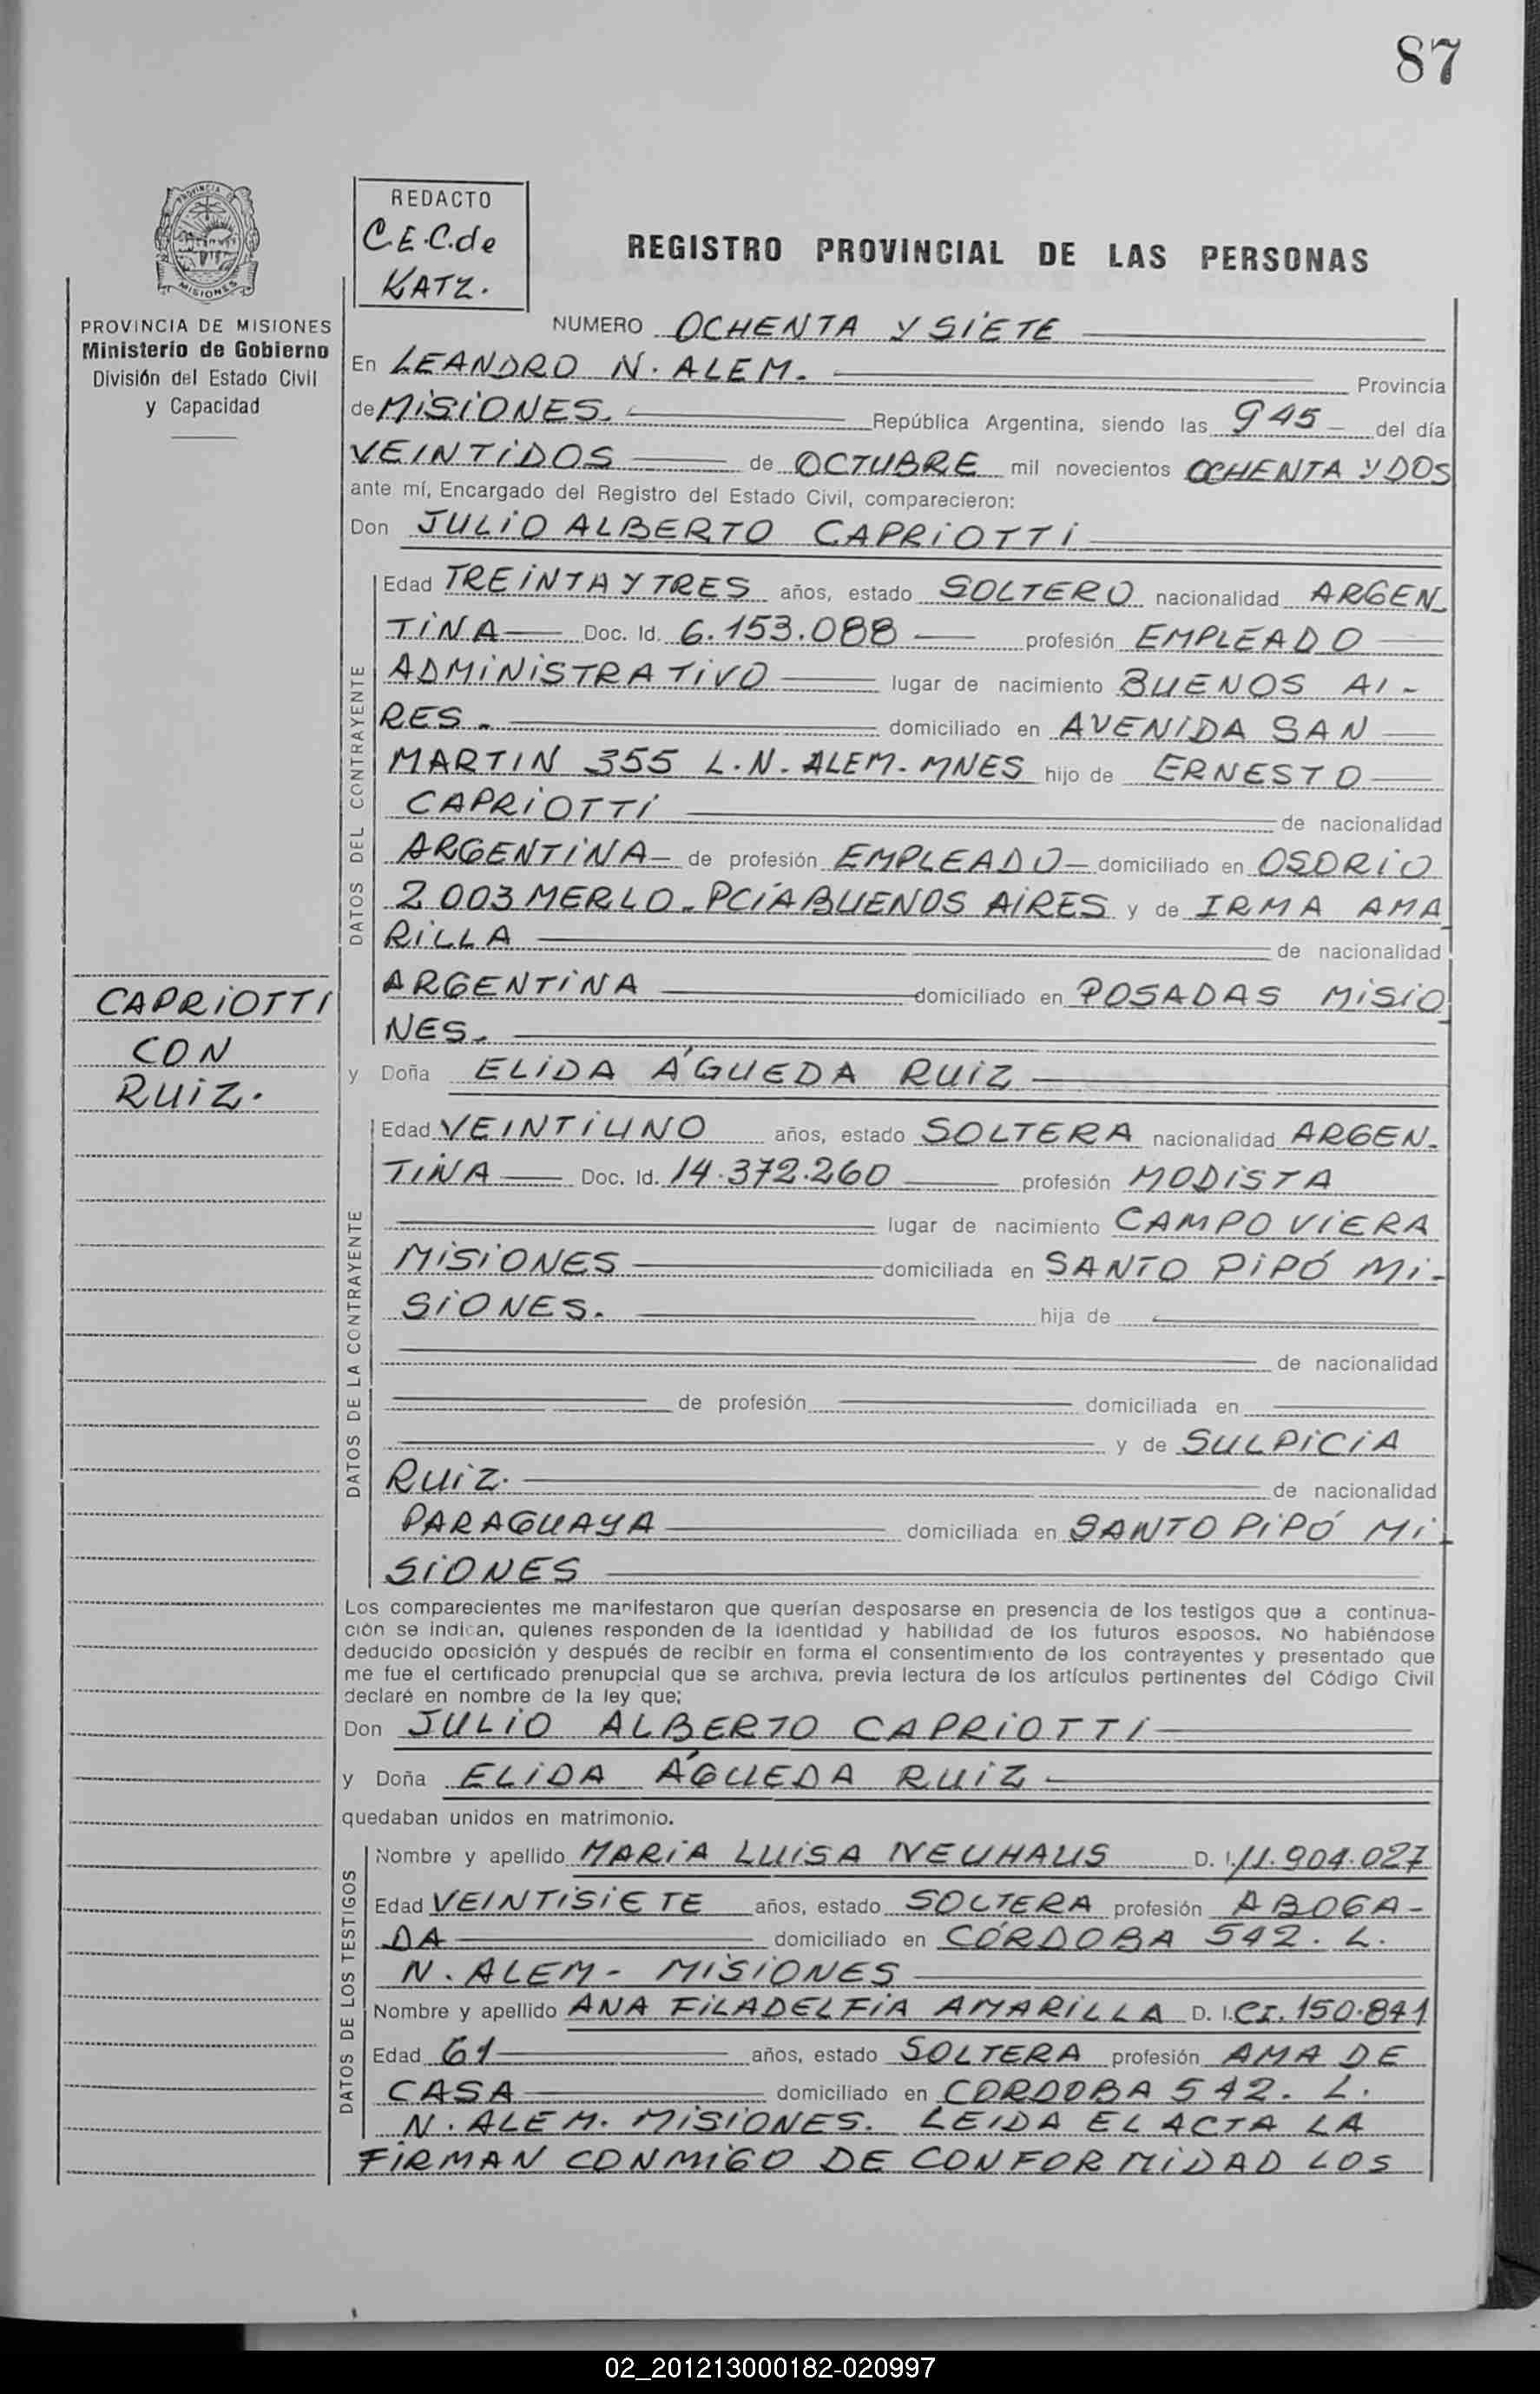 87
PROVINCIA DE
MISIONES
PROVINCIA DE MISIONES
Ministerio de Gobierno
División del Estado Civil
y Capacidad
REDACTO
C.E.C. de
KATZ.
REGISTRO PROVINCIAL DE LAS PERSONAS
NUMERO OCHENTA Y SIETE
En LEANDRO N. ALEM. Provincia
de MISIONES. República Argentina, siendo las 9 45 del día
VEINTIDOS de OCTUBRE mil novecientos OCHENTA Y DOS
ante mí, Encargado del Registro del Estado Civil, comparecieron:
Don JULIO ALBERTO CAPRIOTTI
DATOS DEL CONTRAYENTE
Edad TREINTA Y TRES años, estado SOLTERO nacionalidad ARGEN
TINA Doc. Id. 6.153.088 profesión EMPLEADO
ADMINISTRATIVO lugar de nacimiento BUENOS AI-
RES. domiciliado en AVENIDA SAN
MARTIN 355 L.N. ALEM. MNES hijo de ERNESTO
CAPRIOTTI de nacionalidad
ARGENTINA de profesión EMPLEADO domiciliado en OSORIO
2003 MERLO. PCIA BUENOS AIRES y de IRMA AMA
RILLA de nacionalidad
ARGENTINA domiciliado en POSADAS MISIO
NES.
CAPRIOTTI
CON
RUIZ.
y Doña ELIDA ÁGUEDA RUIZ
DATOS DE LA CONTRAYENTE
Edad VEINTIUNO años, estado SOLTERA nacionalidad ARGEN-
TINA Doc. Id. 14.372.260 profesión MODISTA
lugar de nacimiento CAMPO VIERA
MISIONES domiciliada en SANTO PIPÓ MI-
SIONES. hija de
de nacionalidad
de profesión domiciliada en
y de SULPICIA
RUIZ. de nacionalidad
PARAGUAYA domiciliada en SANTO PIPÓ MI
SIONES
Los comparecientes me manifestaron que querían desposarse en presencia de los testigos que a continua-
ción se indican, quienes responden de la identidad y habilidad de los futuros esposos. No habiéndose
deducido oposición y después de recibir en forma el consentimiento de los contrayentes y presentado que
me fue el certificado prenupcial que se archiva, previa lectura de los artículos pertinentes del Código Civil
declaré en nombre de la ley que;
Don JULIO ALBERTO CAPRIOTTI
y Doña ELIDA ÁGUEDA RUIZ
quedaban unidos en matrimonio.
DATOS DE LOS TESTIGOS
Nombre y apellido MARIA LUISA NEUHAUS D. I. 11.904.027
Edad VEINTISIETE años, estado SOLTERA profesión ABOGA-
DA domiciliado en CÓRDOBA 542. L.
N. ALEM - MISIONES
Nombre y apellido ANA FILADELFIA AMARILLA D. I. CI. 150.841
Edad 61 años, estado SOLTERA profesión AMA DE
CASA domiciliado en CORDOBA 542. L.
N. ALEM. MISIONES. LEIDA EL ACTA LA
FIRMAN CONMIGO DE CONFORMIDAD LOS
02_201213000182-020997